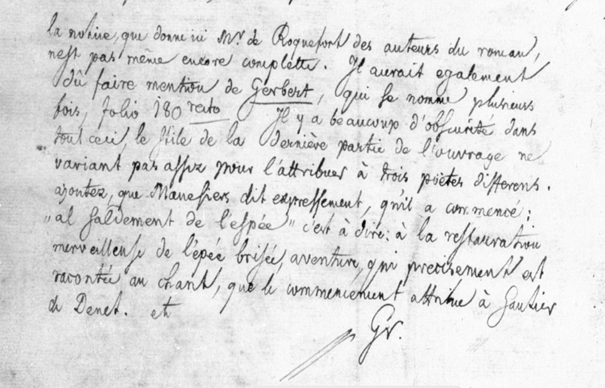 la notice, que donne ici Mr. de Roquefort des auteurs du roman,
n'est pas même encore complette. Il aurait egalement
dû faire mention de Gerbert, qui se nomme plusieurs
fois, folio 180 recto. Il y a beaucoup d'obscurité dans
tout ceci, le stile de la dernière partie de l'ouvrage ne
variant pas assez pour l'attribuer à trois poëtes differens.
ajoutez, que Manessiers dit expressement, qu'il a commencé:
"al saldement de l'espée" c'est à dire: à la restauration
merveilleuse de l'épée brisée, aventure, qui precisement est
racontée au chant, que le commencement attribue à Gautier
de Denet. et
Gr.